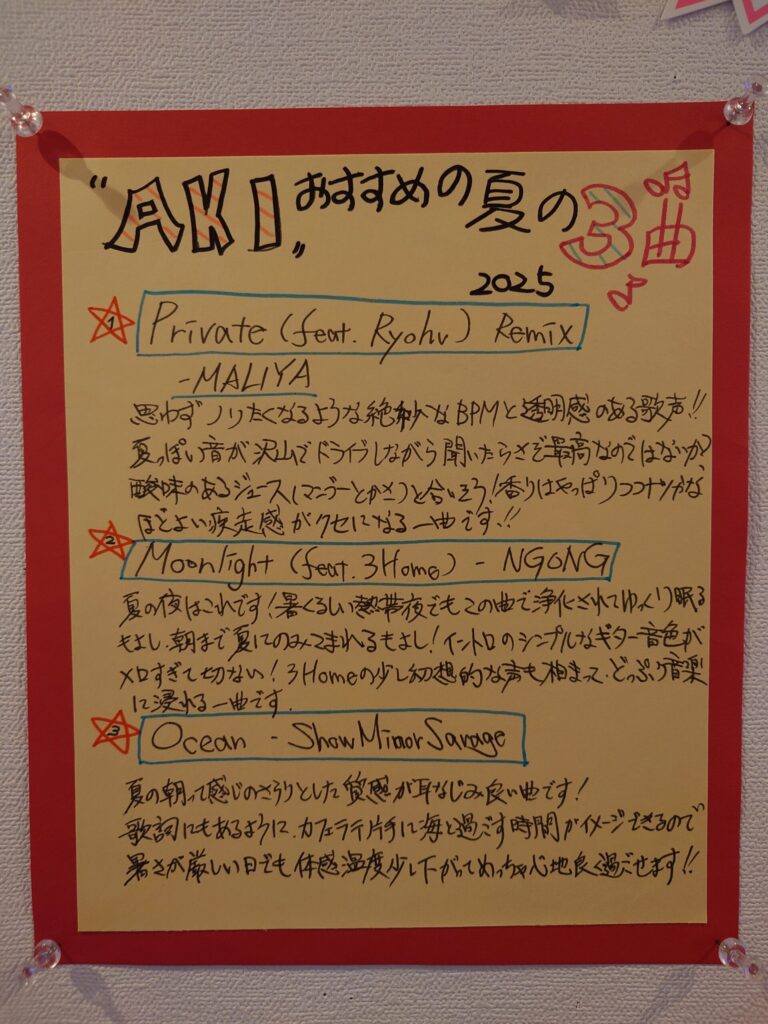 “AKI„ おすすめの夏の3曲
2025
1 Private (feat. Ryohu) Remix
-MALIYA
思わずノリたくなるような絶妙なBPMと透明感のある歌声!!
夏っぽい音が沢山でドライブしながら聞いたらさぞ最高なのではないか?
酸味のあるジュース(マンゴーとかさ)と合いそう!香りはやっぱりココナツかな、
ほどよい疾走感がクセになる一曲です!!
2 Moonlight (feat. 3Home) - NGONG
夏の夜はこれです!暑くるしい熱帯夜でもこの曲で浄化されてゆっくり眠る
もよし、朝まで夏にのみこまれるもよし!イントロのシンプルなギター音色が
メロすぎて切ない!3Homeの少し幻想的な声も相まって、どっぷり音楽
に浸れる一曲です.
3 Ocean - ShowMinorSavage
夏の朝って感じのさらりとした質感が耳なじみ良い曲です!
歌詞にもあるように、カフェラテ片手に海と過ごす時間がイメージできるので
暑さが厳しい日でも体感温度少し下がってめっちゃ心地良く過ごせます!!